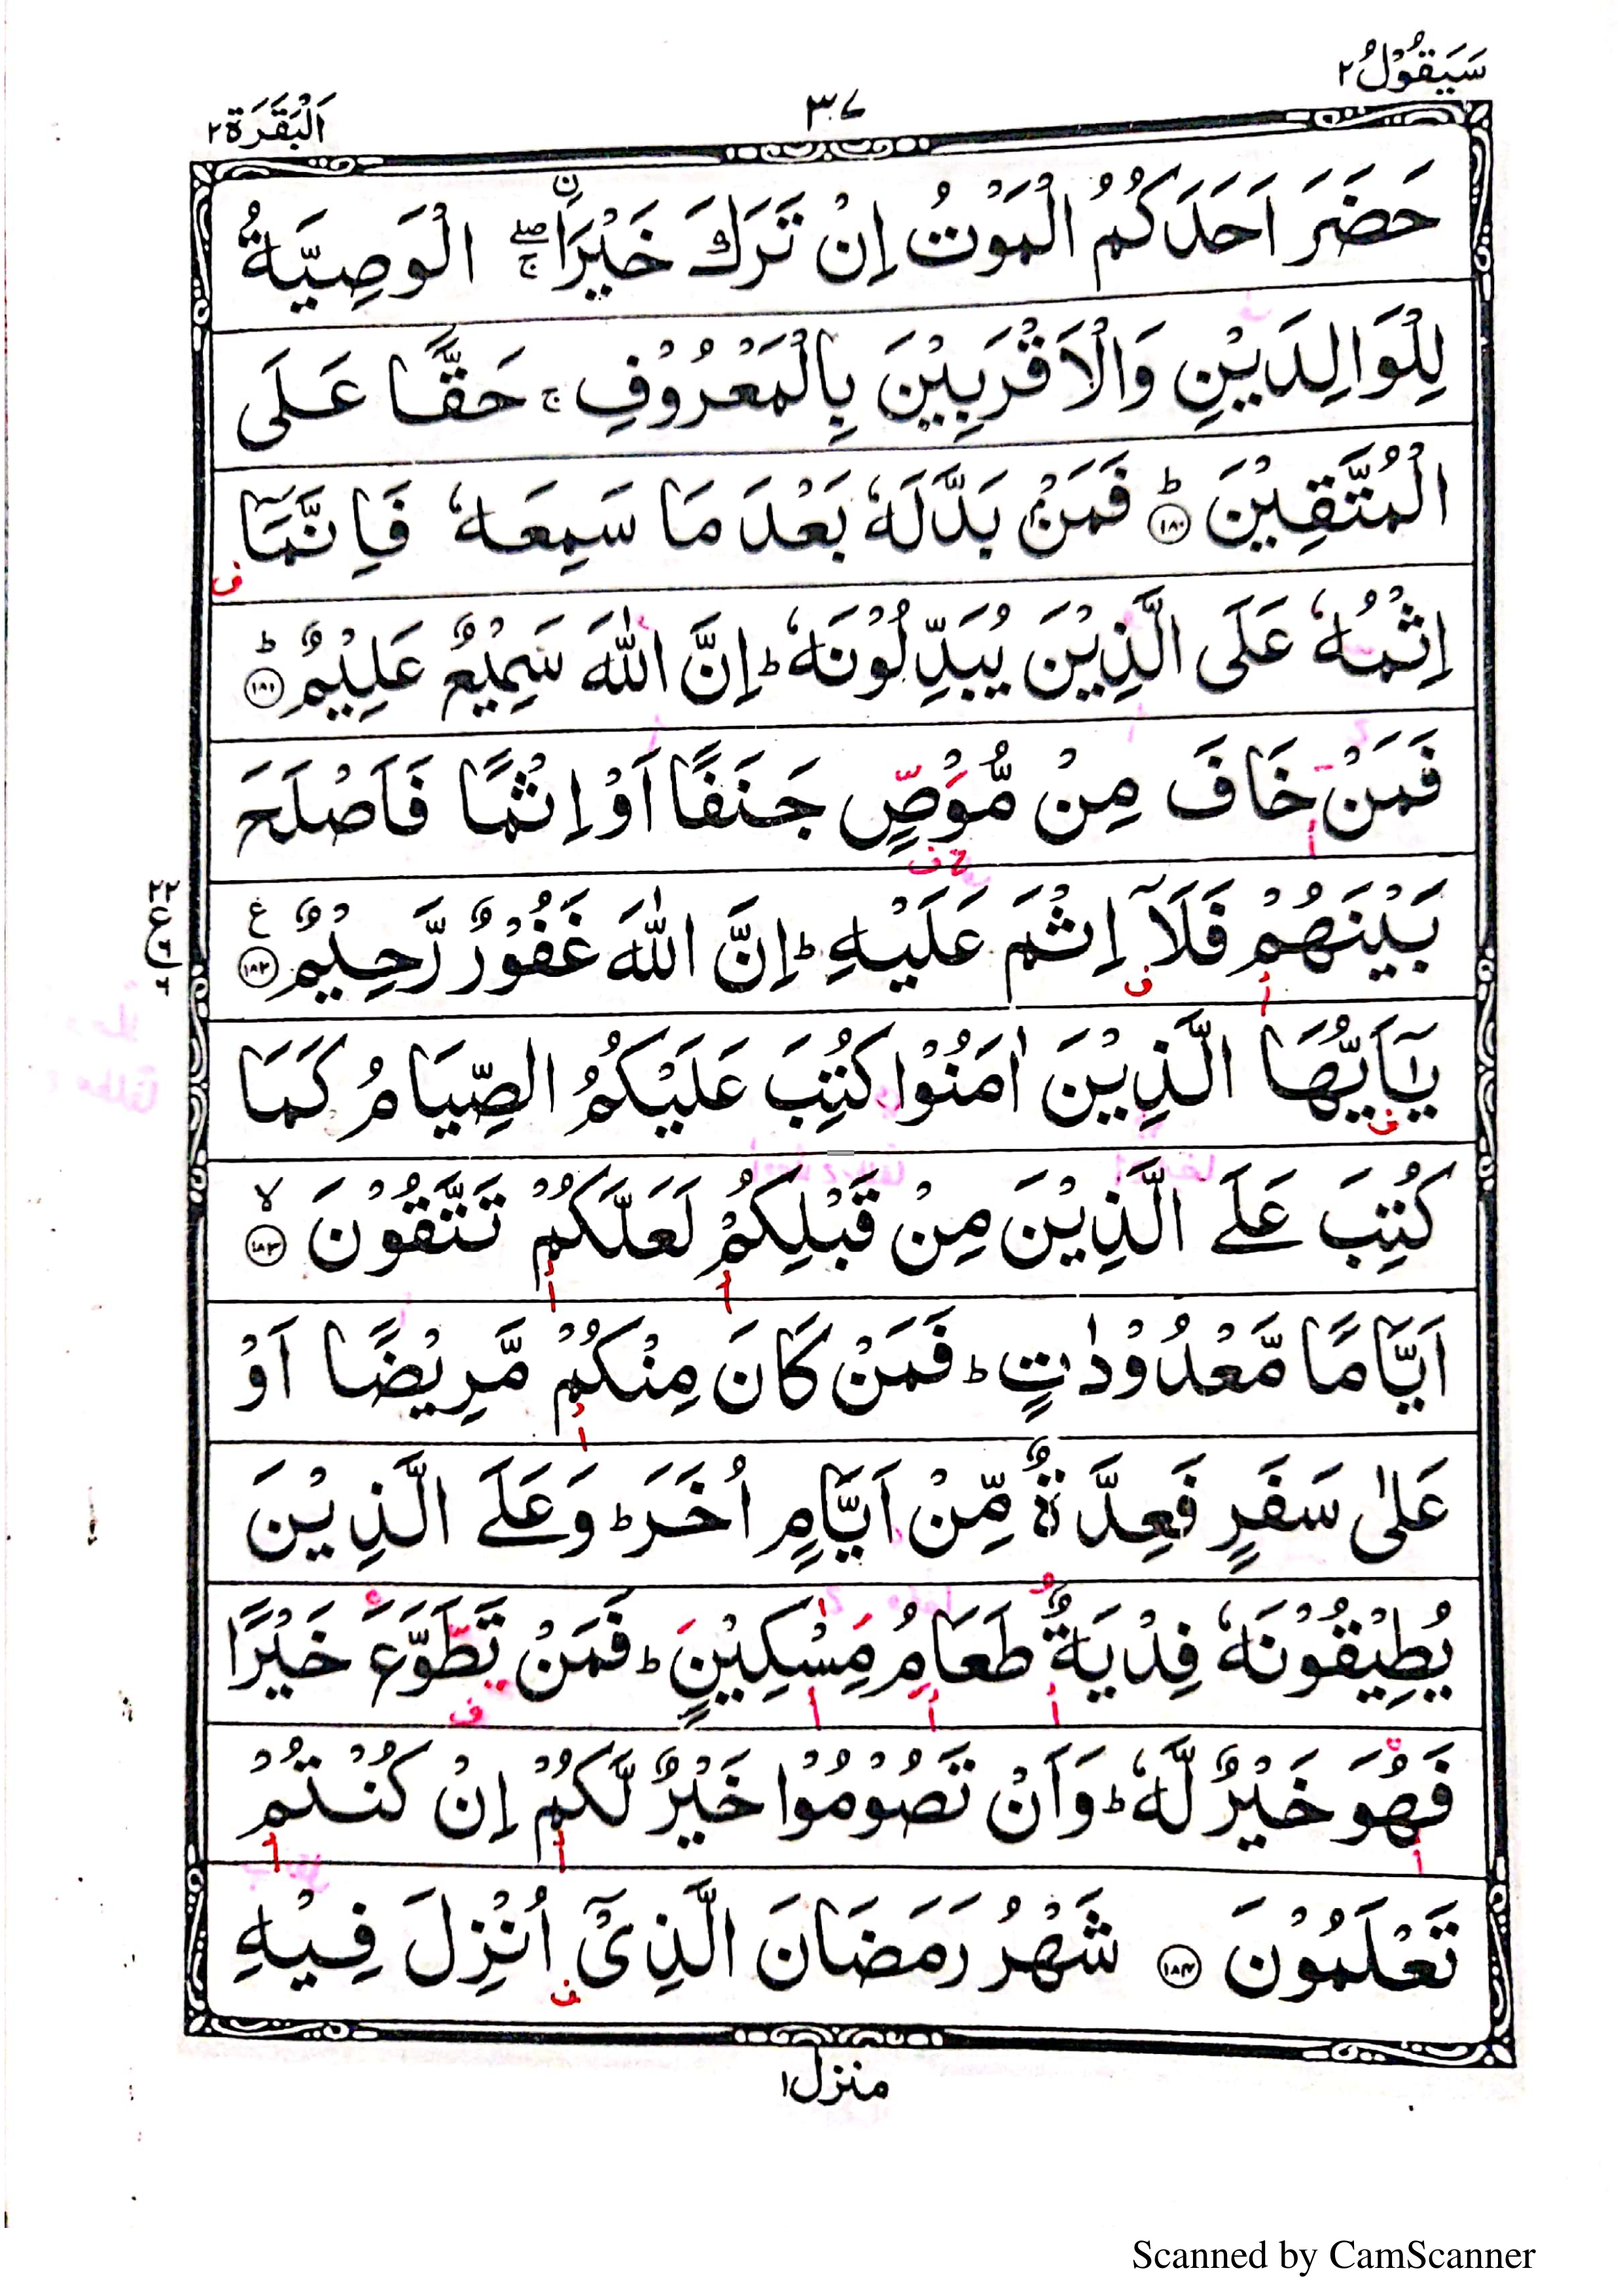 سَيَقُوْلُ ٢
٣٧
اَلْبَقَرَة ٢
حَضَرَ اَحَدَكُمُ الْمَوْتُ اِنْ تَرَكَ خَيْرَاۨ ۖۚ الْوَصِيَّةُ
لِلْوَالِدَيْنِ وَالْاَقْرَبِيْنَ بِالْمَعْرُوْفِ ۚ حَقًّا عَلَى
الْمُتَّقِيْنَ ؕ ١٨٠ فَمَنْۢ بَدَّلَهٗ بَعْدَ مَا سَمِعَهٗ فَاِنَّمَاۤ
ف
اِثْمُهٗ عَلَى الَّذِيْنَ يُبَدِّلُوْنَهٗ ؕ اِنَّ اللّٰهَ سَمِيْعٌ عَلِيْمٌ ؕ ١٨١
فَمَنْ خَافَ مِنْ مُّوْصٍ جَنَفًا اَوْ اِثْمًا فَاَصْلَحَ
بَيْنَهُمْ فَلَاۤ اِثْمَ عَلَيْهِ ؕ اِنَّ اللّٰهَ غَفُوْرٌ رَّحِيْمٌ ع ١٨٢
يٰۤاَيُّهَا الَّذِيْنَ اٰمَنُوْا كُتِبَ عَلَيْكُمُ الصِّيَامُ كَمَا
كُتِبَ عَلَى الَّذِيْنَ مِنْ قَبْلِكُمْ لَعَلَّكُمْ تَتَّقُوْنَ ۙ ١٨٣
اَيَّامًا مَّعْدُوْدٰتٍ ؕ فَمَنْ كَانَ مِنْكُمْ مَّرِيْضًا اَوْ
عَلٰى سَفَرٍ فَعِدَّةٌ مِّنْ اَيَّامٍ اُخَرَ ؕ وَعَلَى الَّذِيْنَ
يُطِيْقُوْنَهٗ فِدْيَةٌ طَعَامُ مِسْكِيْنٍ ؕ فَمَنْ تَطَوَّعَ خَيْرًا
فَهُوَ خَيْرٌ لَّهٗ ؕ وَاَنْ تَصُوْمُوْا خَيْرٌ لَّكُمْ اِنْ كُنْتُمْ
تَعْلَمُوْنَ ١٨٤ شَهْرُ رَمَضَانَ الَّذِىْۤ اُنْزِلَ فِيْهِ
منزل ١
Scanned by CamScanner